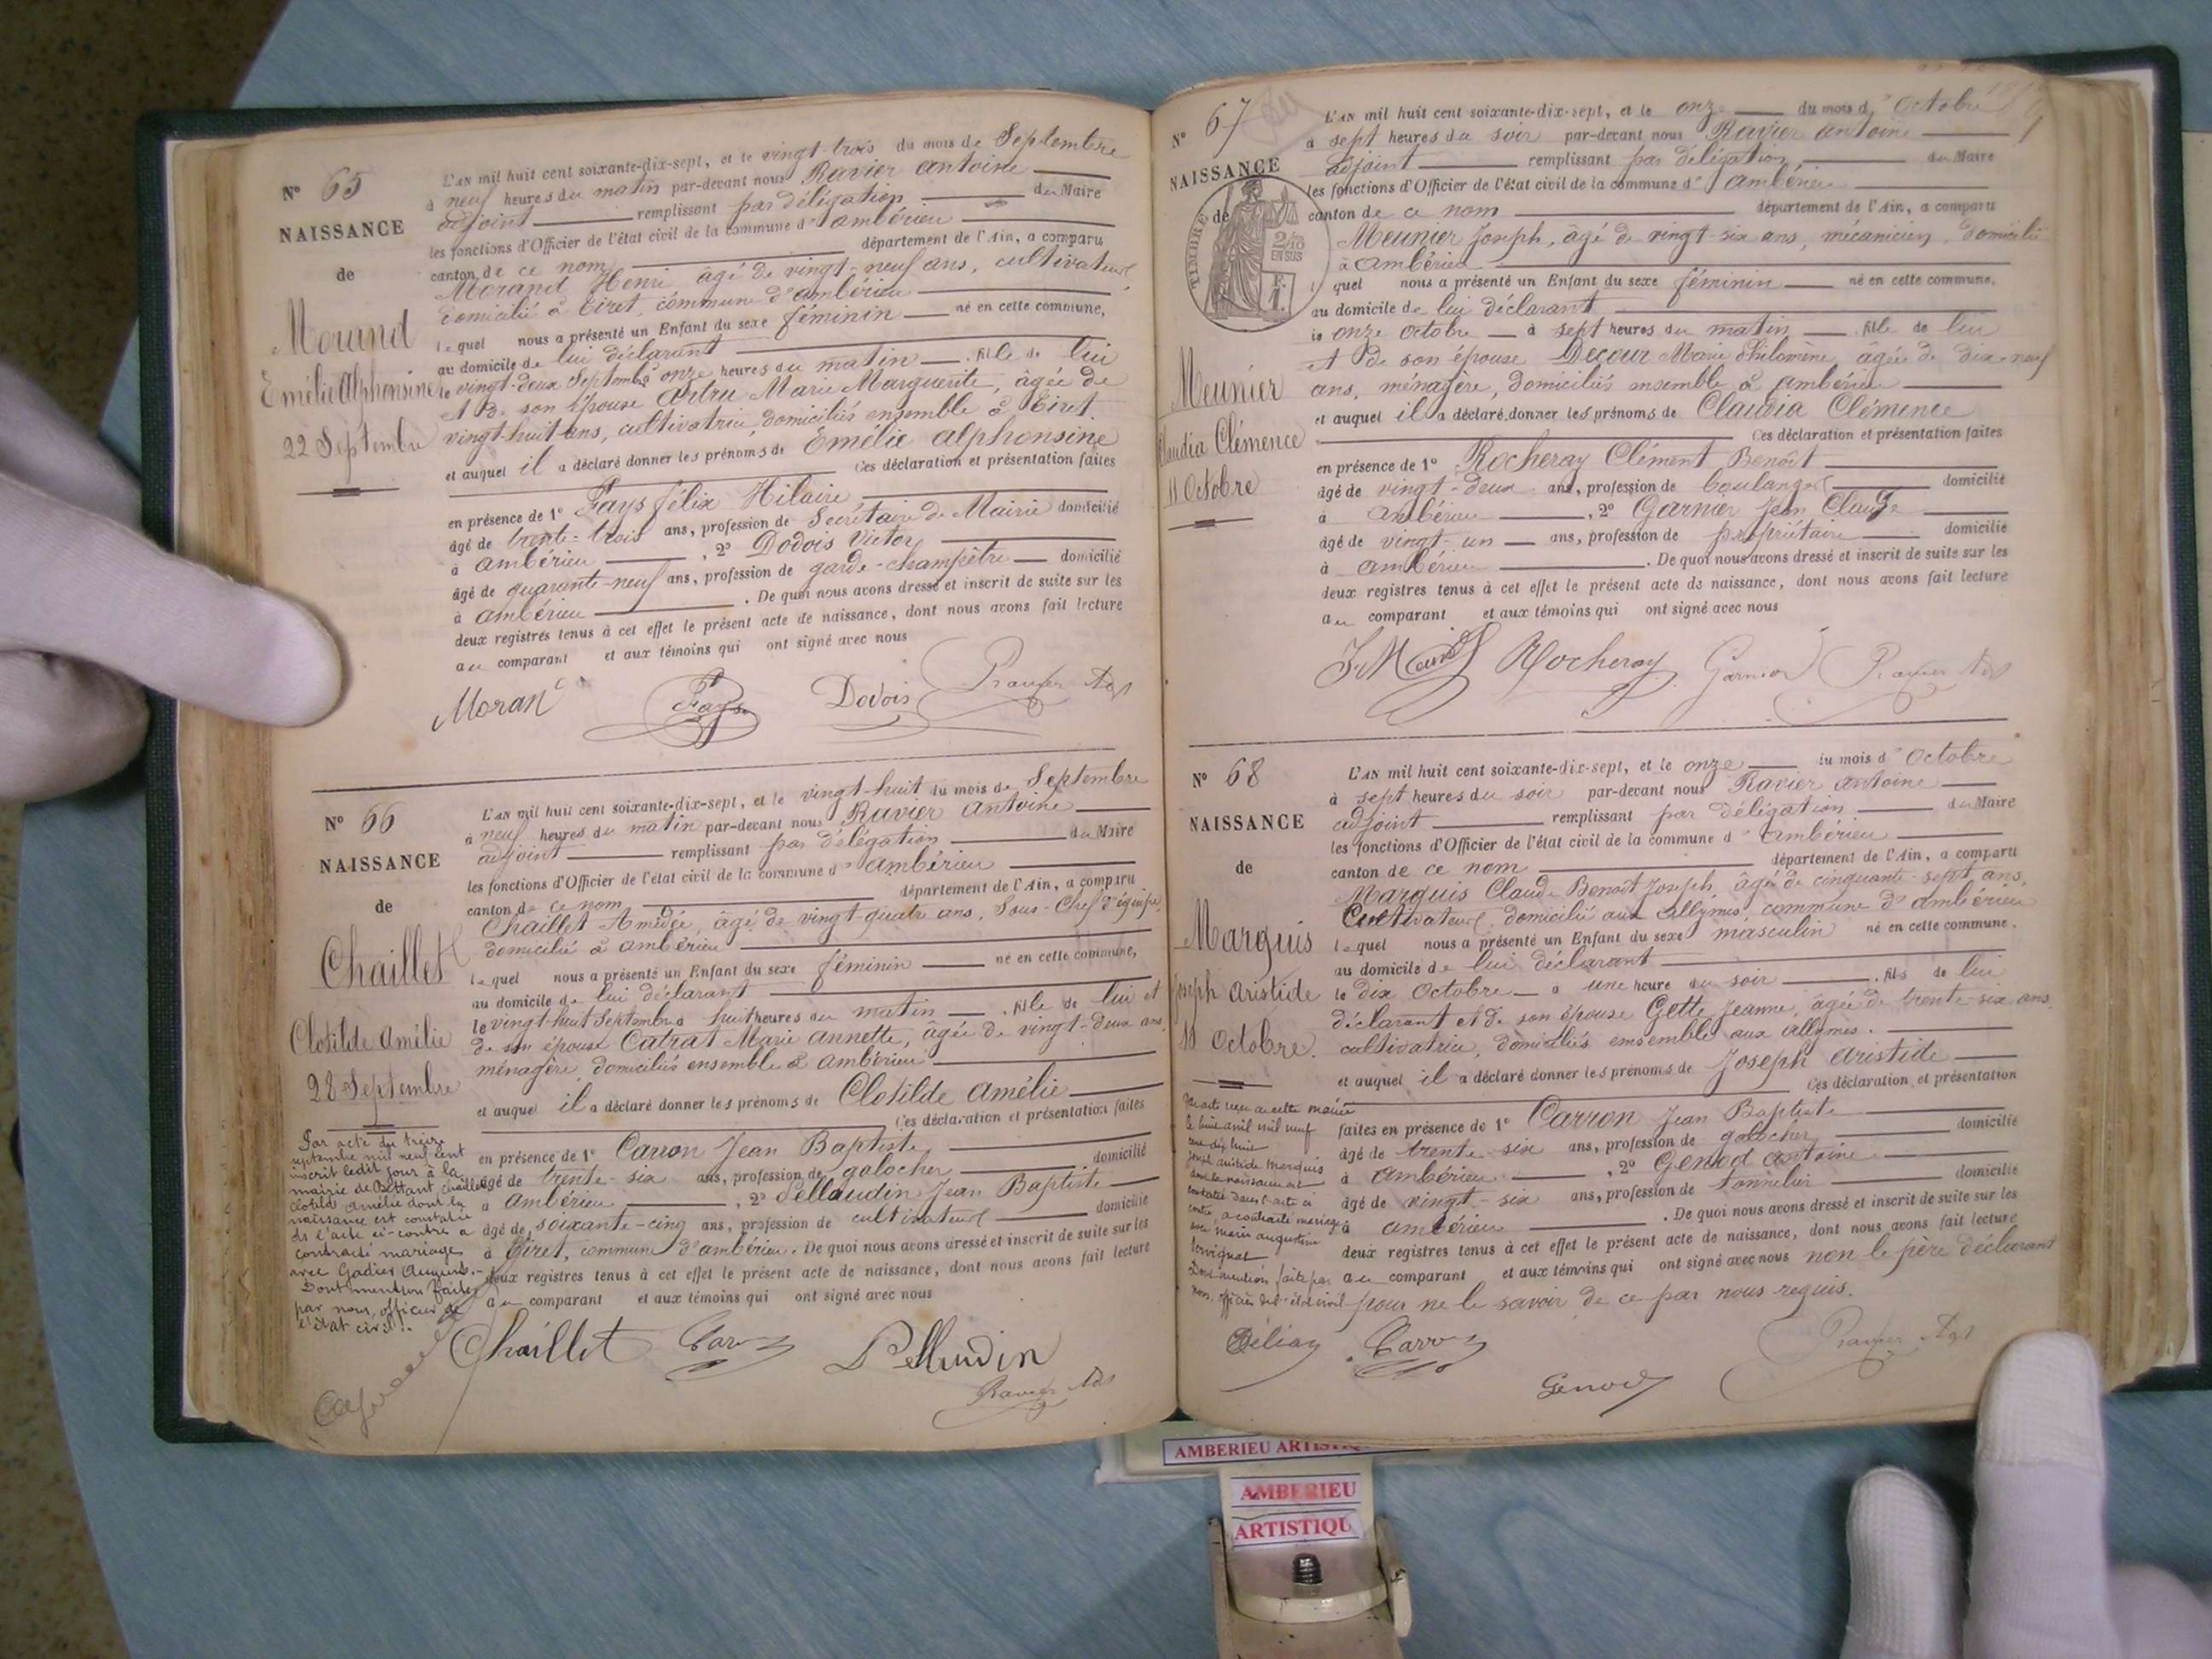 N° 65
NAISSANCE
de
Morand
Emélie Alphonsine
22 Septembre
L'AN mil huit cent soixante-dix-sept, et le vingt-trois du mois de Septembre
à neuf heures du matin par-devant nous Ravier Antoine
adjoint remplissant par délégation du Maire
les fonctions d'Officier de l'état civil de la commune d'ambérieu
canton de ce nom département de l'Ain, a comparu
Morand Henri âgé de vingt-neuf ans, cultivateur
domicilié à Tiret, commune d'ambérieu
lequel nous a présenté un Enfant du sexe féminin né en cette commune,
au domicile de lui déclarant
le vingt-deux Septembre onze heures du matin fille de lui
et de son épouse Artru Marie Marguerite, âgée de
vingt-huit ans, cultivatrice, domiciliés ensemble à Tiret.
et auquel il a déclaré donner les prénoms de Emélie alphonsine
Ces déclaration et présentation faites
en présence de 1° Fays félix Hilaire
âgé de trente-trois ans, profession de Secrétaire de Mairie domicilié
à ambérieu , 2° Dodois Victor
âgé de quarante-neuf ans, profession de garde-champêtre domicilié
à ambérieu . De quoi nous avons dressé et inscrit de suite sur les
deux registres tenus à cet effet le présent acte de naissance, dont nous avons fait lecture
au comparant et aux témoins qui ont signé avec nous
Morand Fays Dodois Ravier Adj
N° 66
NAISSANCE
de
Chaillet
Clotilde Amélie
28 Septembre
L'AN mil huit cent soixante-dix-sept, et le vingt-huit du mois de Septembre
à neuf heures du matin par-devant nous Ravier Antoine
adjoint remplissant par délégation du Maire
les fonctions d'Officier de l'état civil de la commune d'ambérieu
canton de ce nom département de l'Ain, a comparu
Chaillet Amédée, âgé de vingt quatre ans, Sous-Chef d'équipe,
domicilié à ambérieu
lequel nous a présenté un Enfant du sexe féminin né en cette commune,
au domicile de lui déclarant
le vingt-huit Septembre à huit heures du matin fille de lui et
de son épouse Catrat Marie Annette, âgée de vingt-deux ans,
ménagère, domiciliés ensemble à Ambérieu
et auquel il a déclaré donner les prénoms de Clotilde Amélie
Ces déclaration et présentation faites
en présence de 1° Carron Jean Baptiste
âgé de trente-six ans, profession de galocher domicilié
à ambérieu , 2° Pellaudin Jean Baptiste
âgé de soixante-cinq ans, profession de cultivateur domicilié
à Tiret, commune d'ambérieu. De quoi nous avons dressé et inscrit de suite sur les
deux registres tenus à cet effet le présent acte de naissance, dont nous avons fait lecture
au comparant et aux témoins qui ont signé avec nous
Par acte du treize
septembre mil neuf cent
inscrit ledit jour à la
mairie de Bettant Chaillet
Clotilde Amélie dont la
naissance est constatée
ds l'acte ci-contre a
contracté mariage
avec Gadier August.
Dont mention faite
par nous, officier de
l'état civil.
Chaillet Carron Pellaudin
Ravier Adj
N° 67
NAISSANCE
de
TIMBRE
2/10
EN SUS
Meunier
Claudia Clémence
11 Octobre
L'AN mil huit cent soixante-dix-sept, et le onze du mois d'Octobre
à sept heures du soir par-devant nous Ravier Antoine
adjoint remplissant par délégation, du Maire
les fonctions d'Officier de l'état civil de la commune d'ambérieu
canton de ce nom département de l'Ain, a comparu
Meunier Joseph, âgé de vingt-six ans, mécanicien, domicilié
à Ambérieu
lequel nous a présenté un Enfant du sexe féminin né en cette commune,
au domicile de lui déclarant
le onze octobre à sept heures du matin fille de lui
et de son épouse Decour Marie Philomène, âgée de dix-neuf
ans, ménagère, domiciliés ensemble à ambérieu
et auquel il a déclaré donner les prénoms de Claudia Clémence
Ces déclaration et présentation faites
en présence de 1° Rocheray Clément Benoît
âgé de vingt-deux ans, profession de boulanger domicilié
à ambérieu , 2° Garnier Jean Claude
âgé de vingt-un ans, profession de propriétaire domicilié
à ambérieu . De quoi nous avons dressé et inscrit de suite sur les
deux registres tenus à cet effet le présent acte de naissance, dont nous avons fait lecture
au comparant et aux témoins qui ont signé avec nous
Rocheray Garnier Ravier Adj
N° 68
NAISSANCE
de
Marquis
Joseph Aristide
10 Octobre
L'AN mil huit cent soixante-dix-sept, et le onze du mois d'Octobre
à sept heures du soir par-devant nous Ravier Antoine
adjoint remplissant par délégation du Maire
les fonctions d'Officier de l'état civil de la commune d'ambérieu
canton de ce nom département de l'Ain, a comparu
Marquis Claude Benoît Joseph, âgé de cinquante-sept ans,
Cultivateur, domicilié aux allymes, commune d'ambérieu
lequel nous a présenté un Enfant du sexe masculin né en cette commune,
au domicile de lui déclarant
le dix Octobre à une heure du soir fils de lui
déclarant et de son épouse Gette Jeanne, âgée de trente-six ans,
cultivatrice, domiciliés ensemble aux allymes.
et auquel il a déclaré donner les prénoms de Joseph Aristide
Ces déclaration et présentation
faites en présence de 1° Carron Jean Baptiste
âgé de trente-six ans, profession de galocher domicilié
à ambérieu , 2° Genod Antoine
âgé de vingt-six ans, profession de tonnelier domicilié
à ambérieu . De quoi nous avons dressé et inscrit de suite sur les
deux registres tenus à cet effet le présent acte de naissance, dont nous avons fait lecture
au comparant et aux témoins qui ont signé avec nous non le père déclarant
pour ne le savoir de ce par nous requis.
mairie
le huit avril mil neuf
cent dix huit
Joseph Aristide Marquis
dont la naissance est
constatée dans l'acte ci
contre a contracté mariage
avec Marie Augustine
Dont mention faite par
nous, officier de l'état civil
Carron Ravier Adj
Genod
AMBERIEU ARTISTIQ
AMBERIEU
ARTISTIQU